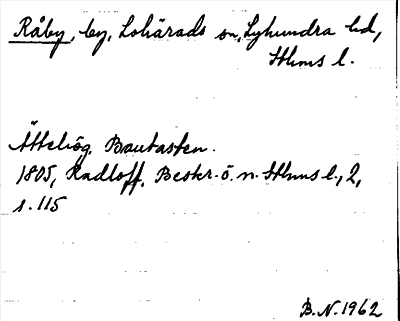 Råby, by, Lohärads sn, Lyhundra hd,
Sthms l.
Ättehög. Bautasten.
1805, Radloff, Beskr. ö. n. Sthms l., 2,
s. 115
B.N. 1962